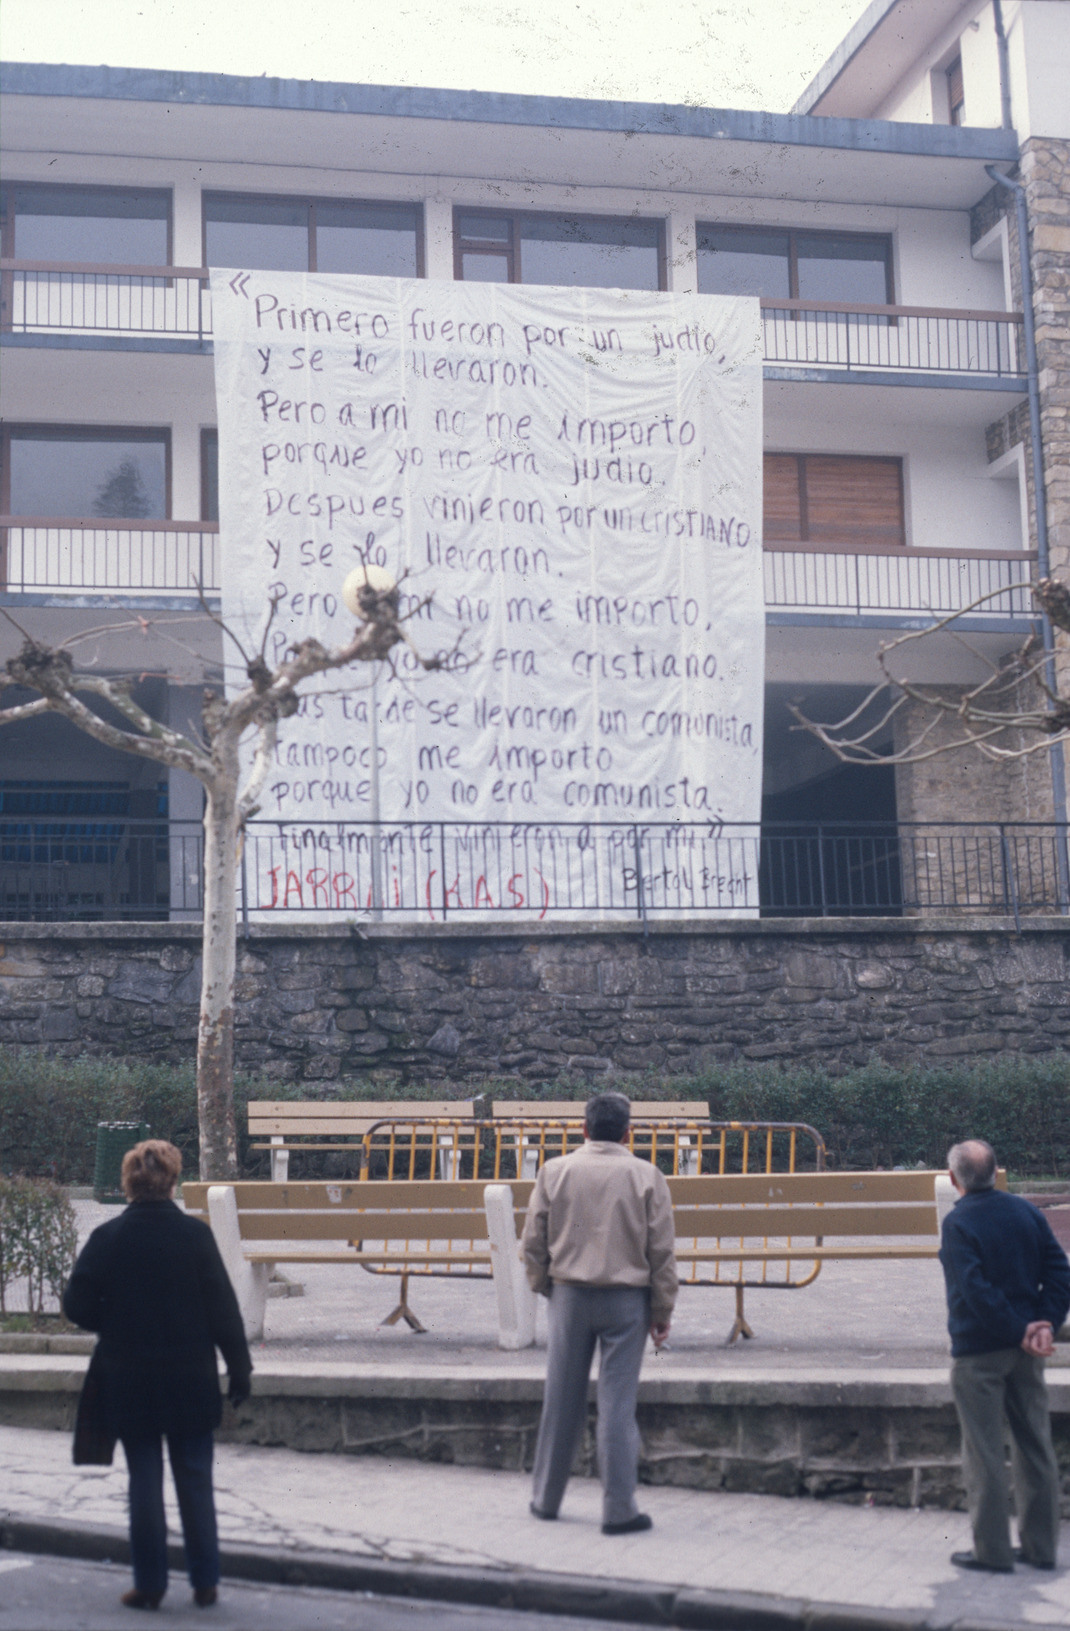 «
Primero fueron por un judio,
y se lo llevaron.
Pero a mi no me importo,
porque yo no era judio.
Despues vinieron por un CRISTIANO
y se lo llevaron.
Pero mi no me importo,
yo no era cristiano.
tarde se llevaron un comunista,
tampoco me importo
porque yo no era comunista.
Finalmente vinieron a por mi.»
JARRAi (KAS) Bertol Breght